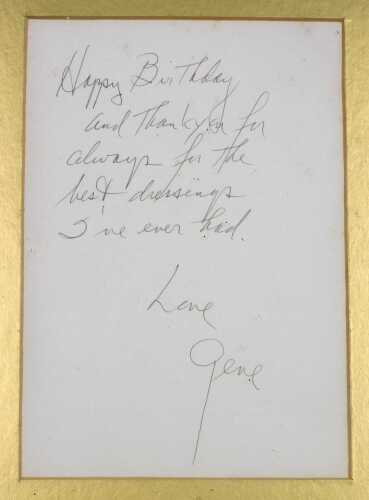 Happy Birthday
and thank you for
always for the
best dressings
I've ever had.
Love
Gene